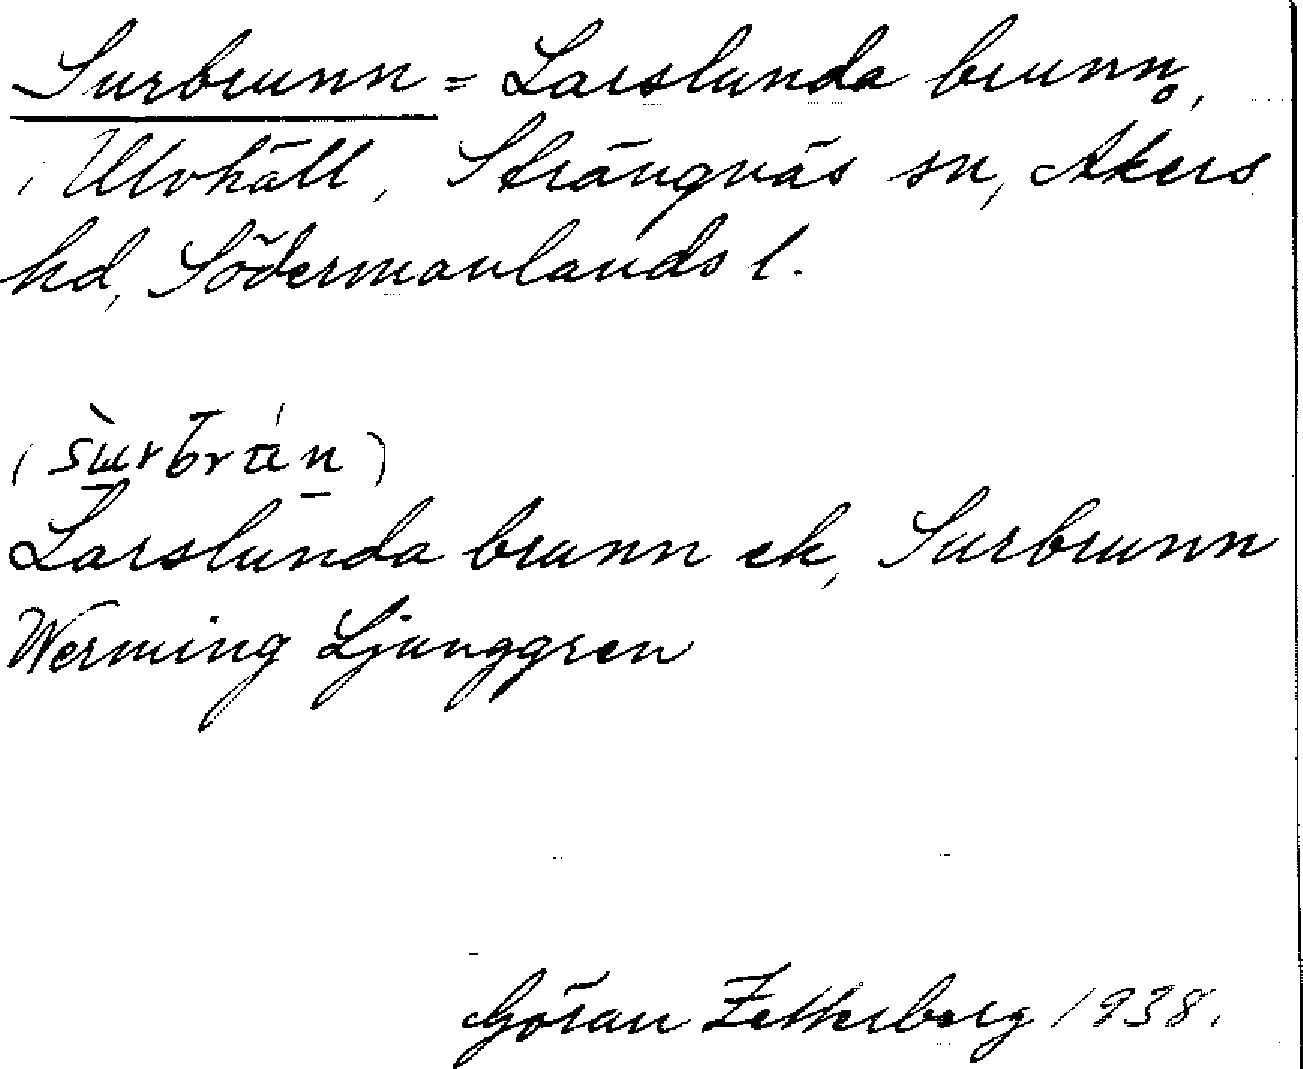 Surbrunn = Larslunda brunn,
Ulvhäll, Strängnäs sn, Åkers
hd, Södermanlands l.
Larslunda brunn ek, Surbrunn
Werming Ljunggren
Göran Zetterberg 1938.